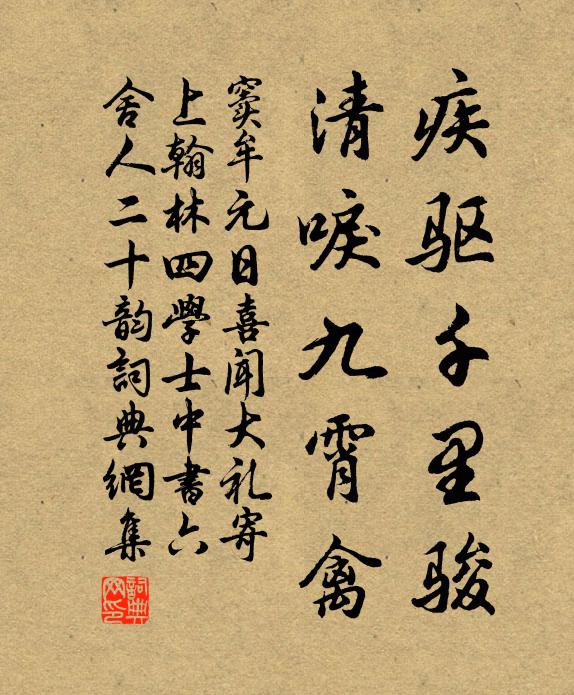 疾驱千里骏
清唳九霄禽
窦牟元日喜闻大礼寄
上翰林四學士中書六
舍人二十韵詞典網集
詞典
网印